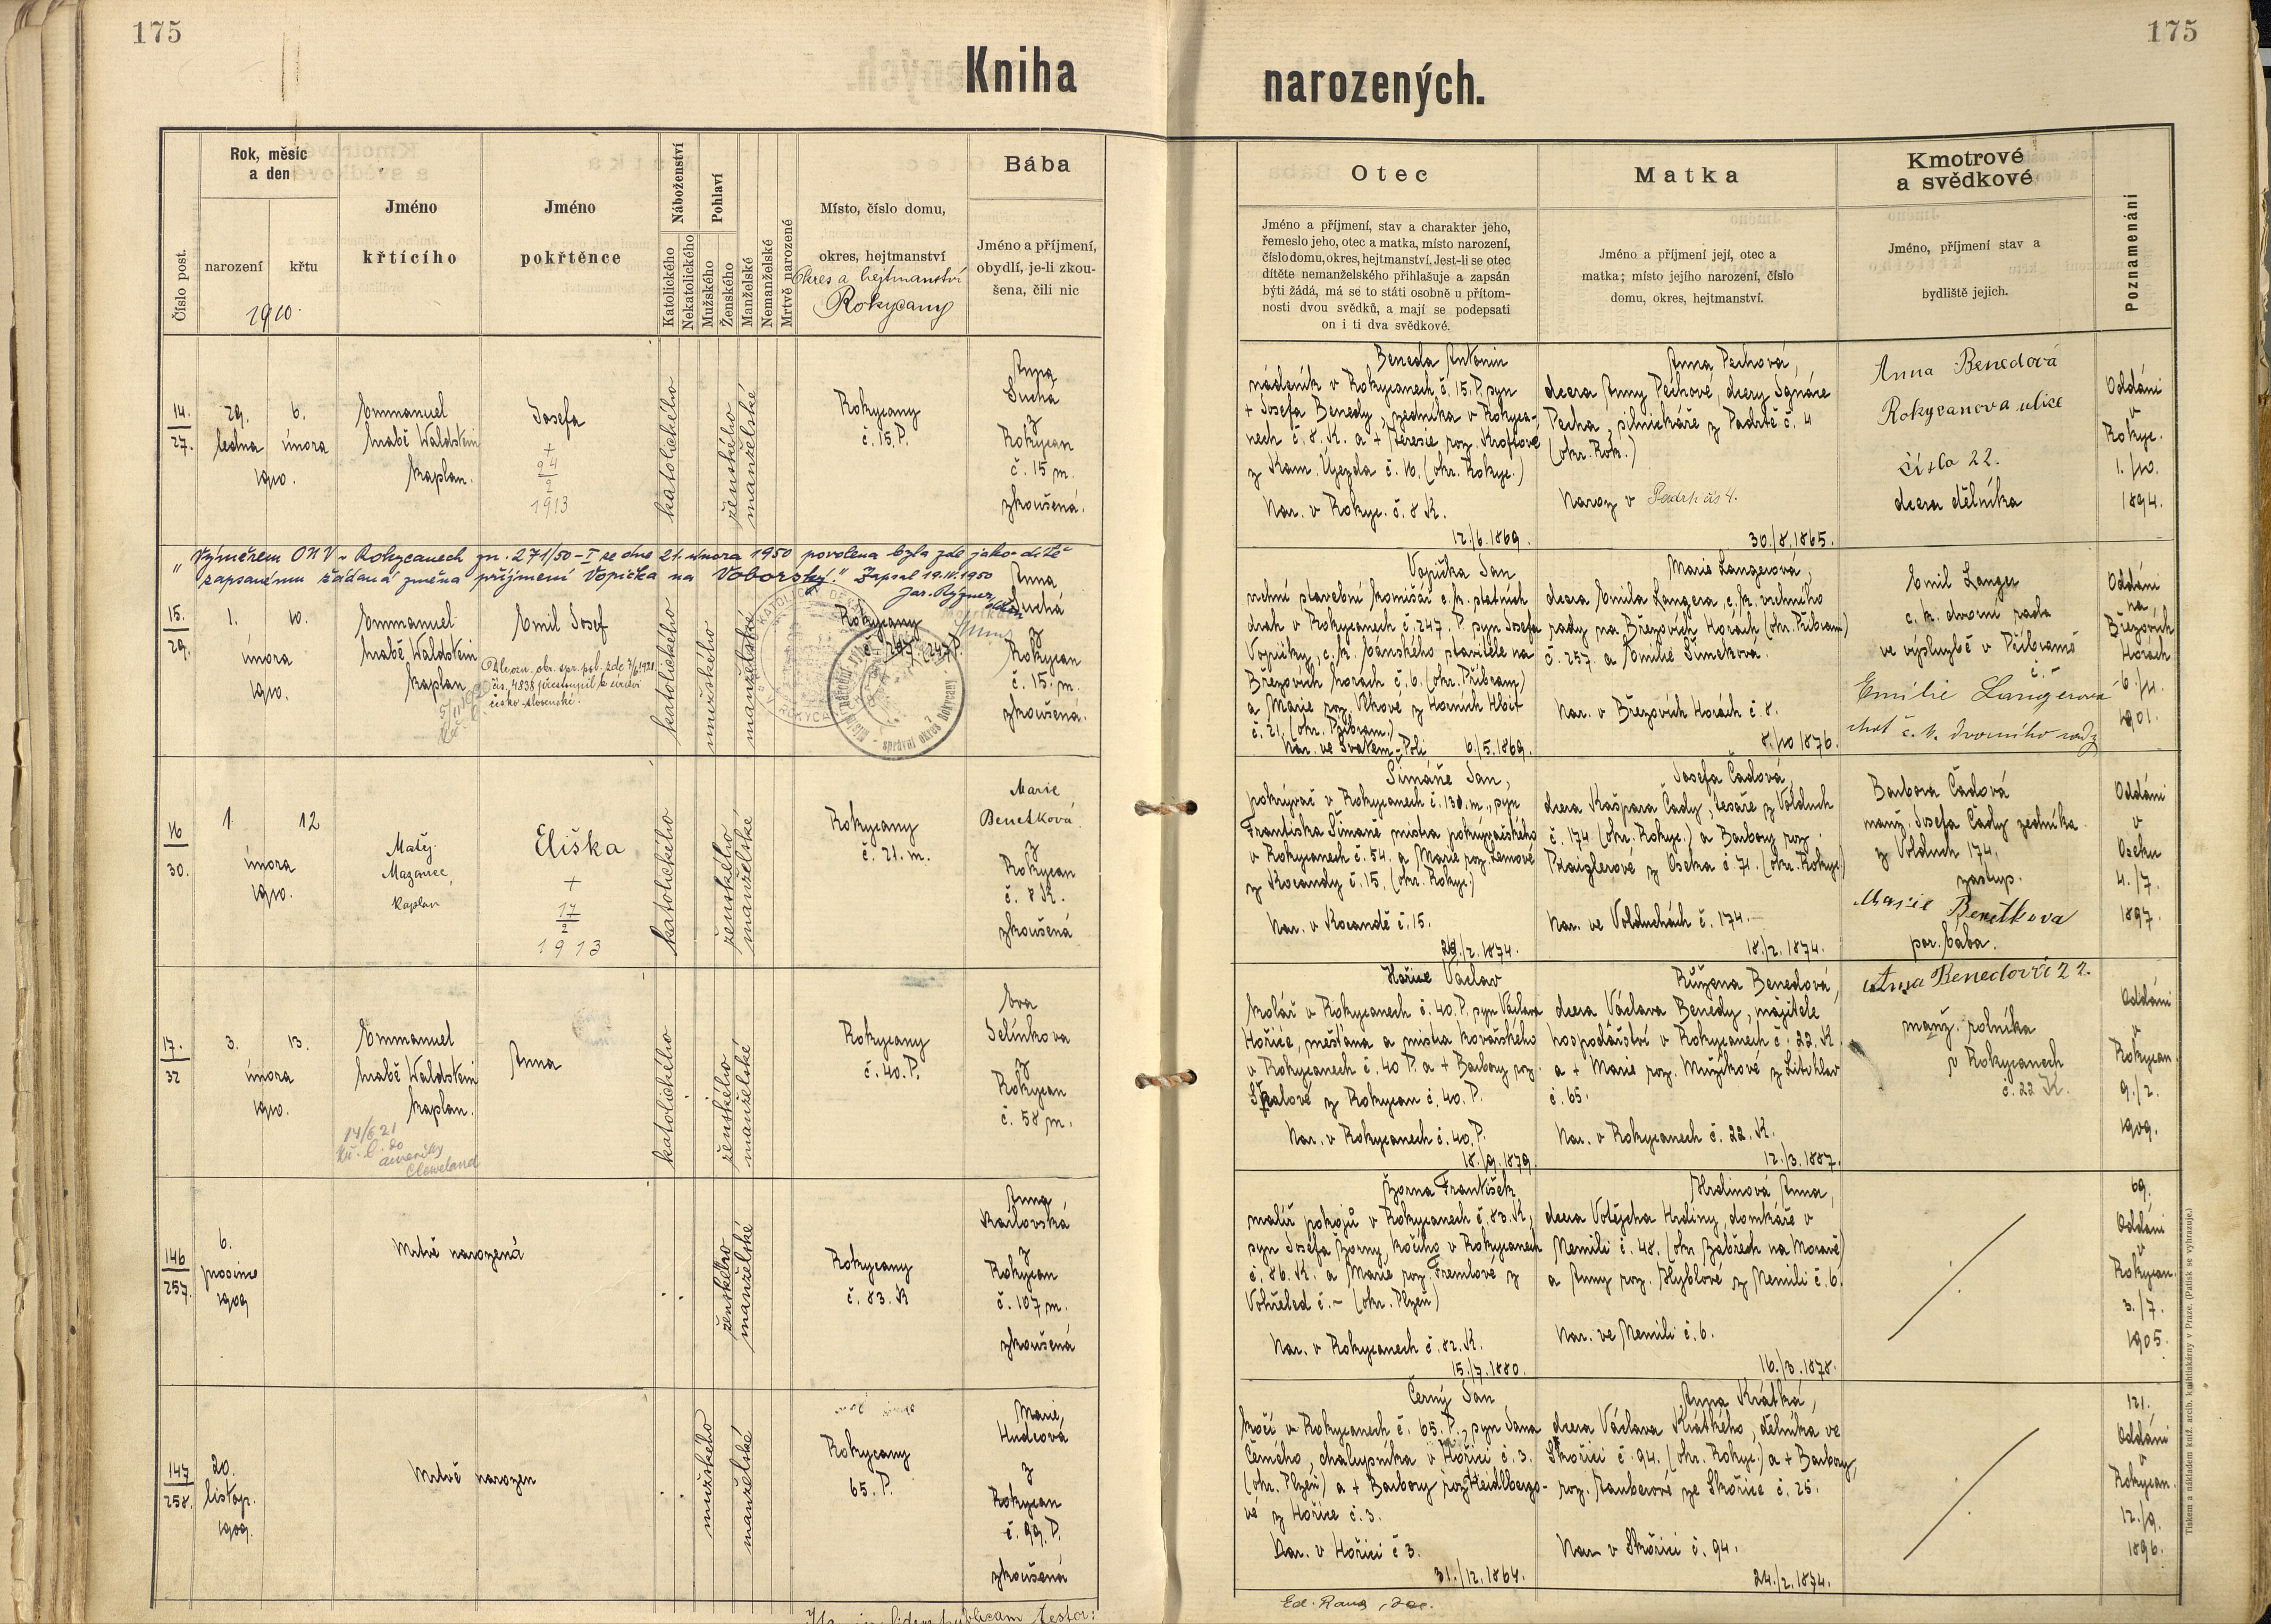 175
175
Kniha
narozených.
Číslo post.
Rok, měsíc
a den
narození
křtu
1910.
Jméno
křtícího
Jméno
pokřtěnce
Náboženství
Katolického
Nekatolického
Pohlaví
Mužského
Ženského
Manželské
Nemanželské
Mrtvě narozené
Místo, číslo domu,
okres, hejtmanství
Okres a hejtmanství
Rokycany
Bába
Jméno a příjmení,
obydlí, je-li zkou-
šena, čili nic
Otec
Jméno a příjmení, stav a charakter jeho,
řemeslo jeho, otec a matka, místo narození,
číslo domu, okres, hejtmanství. Jest-li se otec
dítěte nemanželského přihlašuje a zapsán
býti žádá, má se to státi osobně u přítom-
nosti dvou svědků, a mají se podepsati
on i ti dva svědkové.
Matka
Jméno a příjmení její, otec a
matka; místo jejího narození, číslo
domu, okres, hejtmanství.
Kmotrové
a svědkové
Jméno, příjmení stav a
bydliště jejich.
Poznamenání
14.
27.
29.
ledna
1910.
6.
února
Emmanuel
hrabě Waldstein
kaplan.
Josefa
+
24
2
1913
katolického
ženského
manželské
Rokycany
č. 15. P.
Anna
Suchá
z
Rokycan
č. 15 m.
zkoušená.
Beneda Antonín
nádeník v Rokycanech č. 15. P. syn
+ Josefa Benedy, zedníka v Rokyca-
nech č. 8. K. a + Teresie roz. Kroftové
z Kam. Újezda č. 10. (okr. Rokyc.)
Nar. v Rokyc. č. 8 K.
12./6. 1869.
Anna Pechová,
dcera Anny Pechové, dcery Ignáce
Pecha, silničkáře z Padrtě č. 4
(okr. Rok.)
Naroz v Padrti čís 4.
30./8. 1865.
Anna Benedová
Rokycanova ulice
číslo 22.
dcera dělníka
Oddáni
v
Rokyc.
1./10.
1894.
"Výměrem ONV v Rokycanech zn. 271/50-I ze dne 21. února 1950 povolena byla zde jako dítě
zapsanému žádaná změna příjmení Vopička na Voborský." Zapsal 19.IV.1950
15.
29.
1.
února
1910.
10.
Emmanuel
hrabě Waldstein
kaplan
Emil Josef
čís. 4838 přestoupil k církvi
česko-slovenské.
katolického
mužského
manželské
Rokycany
č. 247. P.
Anna
Suchá
z
Rokycan
č. 15. m.
zkoušená.
Vopička Jan
vrchní stavební komisář c. k. státních
drah v Rokycanech č. 247. P. syn Josefa
Vopičky, c. k. báňského stavitele na
Březových horách č. 6. (okr. Příbram)
a Marie roz. Vlkové z Horních Hbit
č. 21. (okr. Příbram.)
Nar. ve Svatém-Poli 6./5. 1869.
Marie Langerová,
dcera Emila Langera, c. k. vrchního
rady na Březových Horách (okr. Příbram)
č. 257. a Emilie Šimekova.
Nar. v Březových Horách č. 8.
8./10 1876.
Emil Langer
c. k. dvorní rada
ve výslužbě v Příbrami
č. -
Emilie Langerová
choť c. k. dvorního rady
Oddáni
na
Březových
Horách
6./11.
1901.
16
30.
1
února
1910.
12
Matěj
Mazanec,
kaplan
Eliška
+
17
2
1913
katolického
ženského
manželské
Rokycany
č. 21. m.
Marie
Benetková
z
Rokycan
č. 8 K.
zkoušená
Šimáně Jan,
pokrývač v Rokycanech č. 130. m., syn
Františka Šimaně mistra pokrývačského
v Rokycanech č. 54. a Marie roz. Lemové
z Kocandy č. 15. (okr. Rokyc.)
Nar. v Kocandě č. 15.
Josefa Čadová,
dcera Kašpara Čady, tesaře z Volduch
č. 174 (okr. Rokyc.) a Barbory roz.
Praiglerové z Oseka č. 71. (okr. Rokyc)
Nar. ve Volduchách č. 174.
18./2. 1874.
Barbora Čádová
manž. Josefa Čady zedníka
z Volduch 174.
zastup.
Marie Benetkova
por. bába.
Oddáni
v
Oseku
4./7.
1897.
17.
32
3.
února
1910.
13.
Emmanuel
hrabě Waldstein
kaplan.
14/6 21
do
Ameriky
Cleweland
Anna
katolického
ženského
manželské
Rokycany
č. 40. P.
Eva
Jelínkova
z
Rokycan
č. 58 m.
Hořice Václav
kolář v Rokycanech č. 40. P. syn Václava
Hořice, měšťana a mistra kovářského
v Rokycanech č. 40 P. a + Barbory roz.
Špalové z Rokycan č. 40. P.
Nar. v Rokycanech č. 40. P.
18./9. 1879.
Růžena Benedová,
dcera Václava Benedy, majitele
hospodářství v Rokycanech č. 22. K.
a + Marie roz. Mužíkové z Litohlav
č. 65.
Nar. v Rokycanech č. 22. K.
12./3. 1887.
Anna Benedová č 22.
manž. rolníka
v Rokycanech
č. 22 K.
Oddáni
v
Rokycan.
9./2.
1909.
146
257.
6.
prosince
1909
Mrtvě narozená
ženského
manželské
Rokycany
č. 83. K
Anna
Karlovská
z
Rokycan
č. 107 m.
zkoušená
Žorna František
malíř pokojů v Rokycanech č. 83. K,
syn Josefa Žorny, kočího v Rokycanech
č. 86. K. a Marie roz. Fremlové z
Vohřeled č. - (okr. Plzeň)
Nar. v Rokycanech č. 82. K.
15./7. 1880.
Hrdinová Anna,
dcera Vojtěcha Hrdiny, domkáře v
Nemili č. 48. (okr. Zábřech na Moravě)
a Anny roz. Hyblové z Nemili č. 6.
Nar. ve Nemili č. 6.
16./3. 1878.
69.
Oddáni
v
Rokycan.
3./7.
1905.
147
258.
20.
listop.
1909.
Mrtvě narozen
mužského
manželské
Rokycany
65. P.
Marie
Hudcová
z
Rokycan
č. 99. P.
zkoušená
Černý Jan
kočí v Rokycanech č. 65. P., syn Jana
Černého, chalupníka v Hořici č. 3.
(okr. Plzeň) a + Barbory roz. Heidlbergo-
vé z Hořice č. 3.
Nar. v Hořici č 3.
31./12. 1864.
Anna Krátká,
dcera Václava Krátkého, dělníka ve
Skořici č. 94. (okr. Rokyc.) a + Barbory,
roz. Rauberové ze Skořice č. 25.
Nar. v Skořici č. 94.
24./2. 1874.
121.
Oddáni
v
Rokycan.
12./9.
1896.
Tiskem a nákladem kníž. arcib. knihtiskárny v Praze. (Patisk se vyhrazuje.)